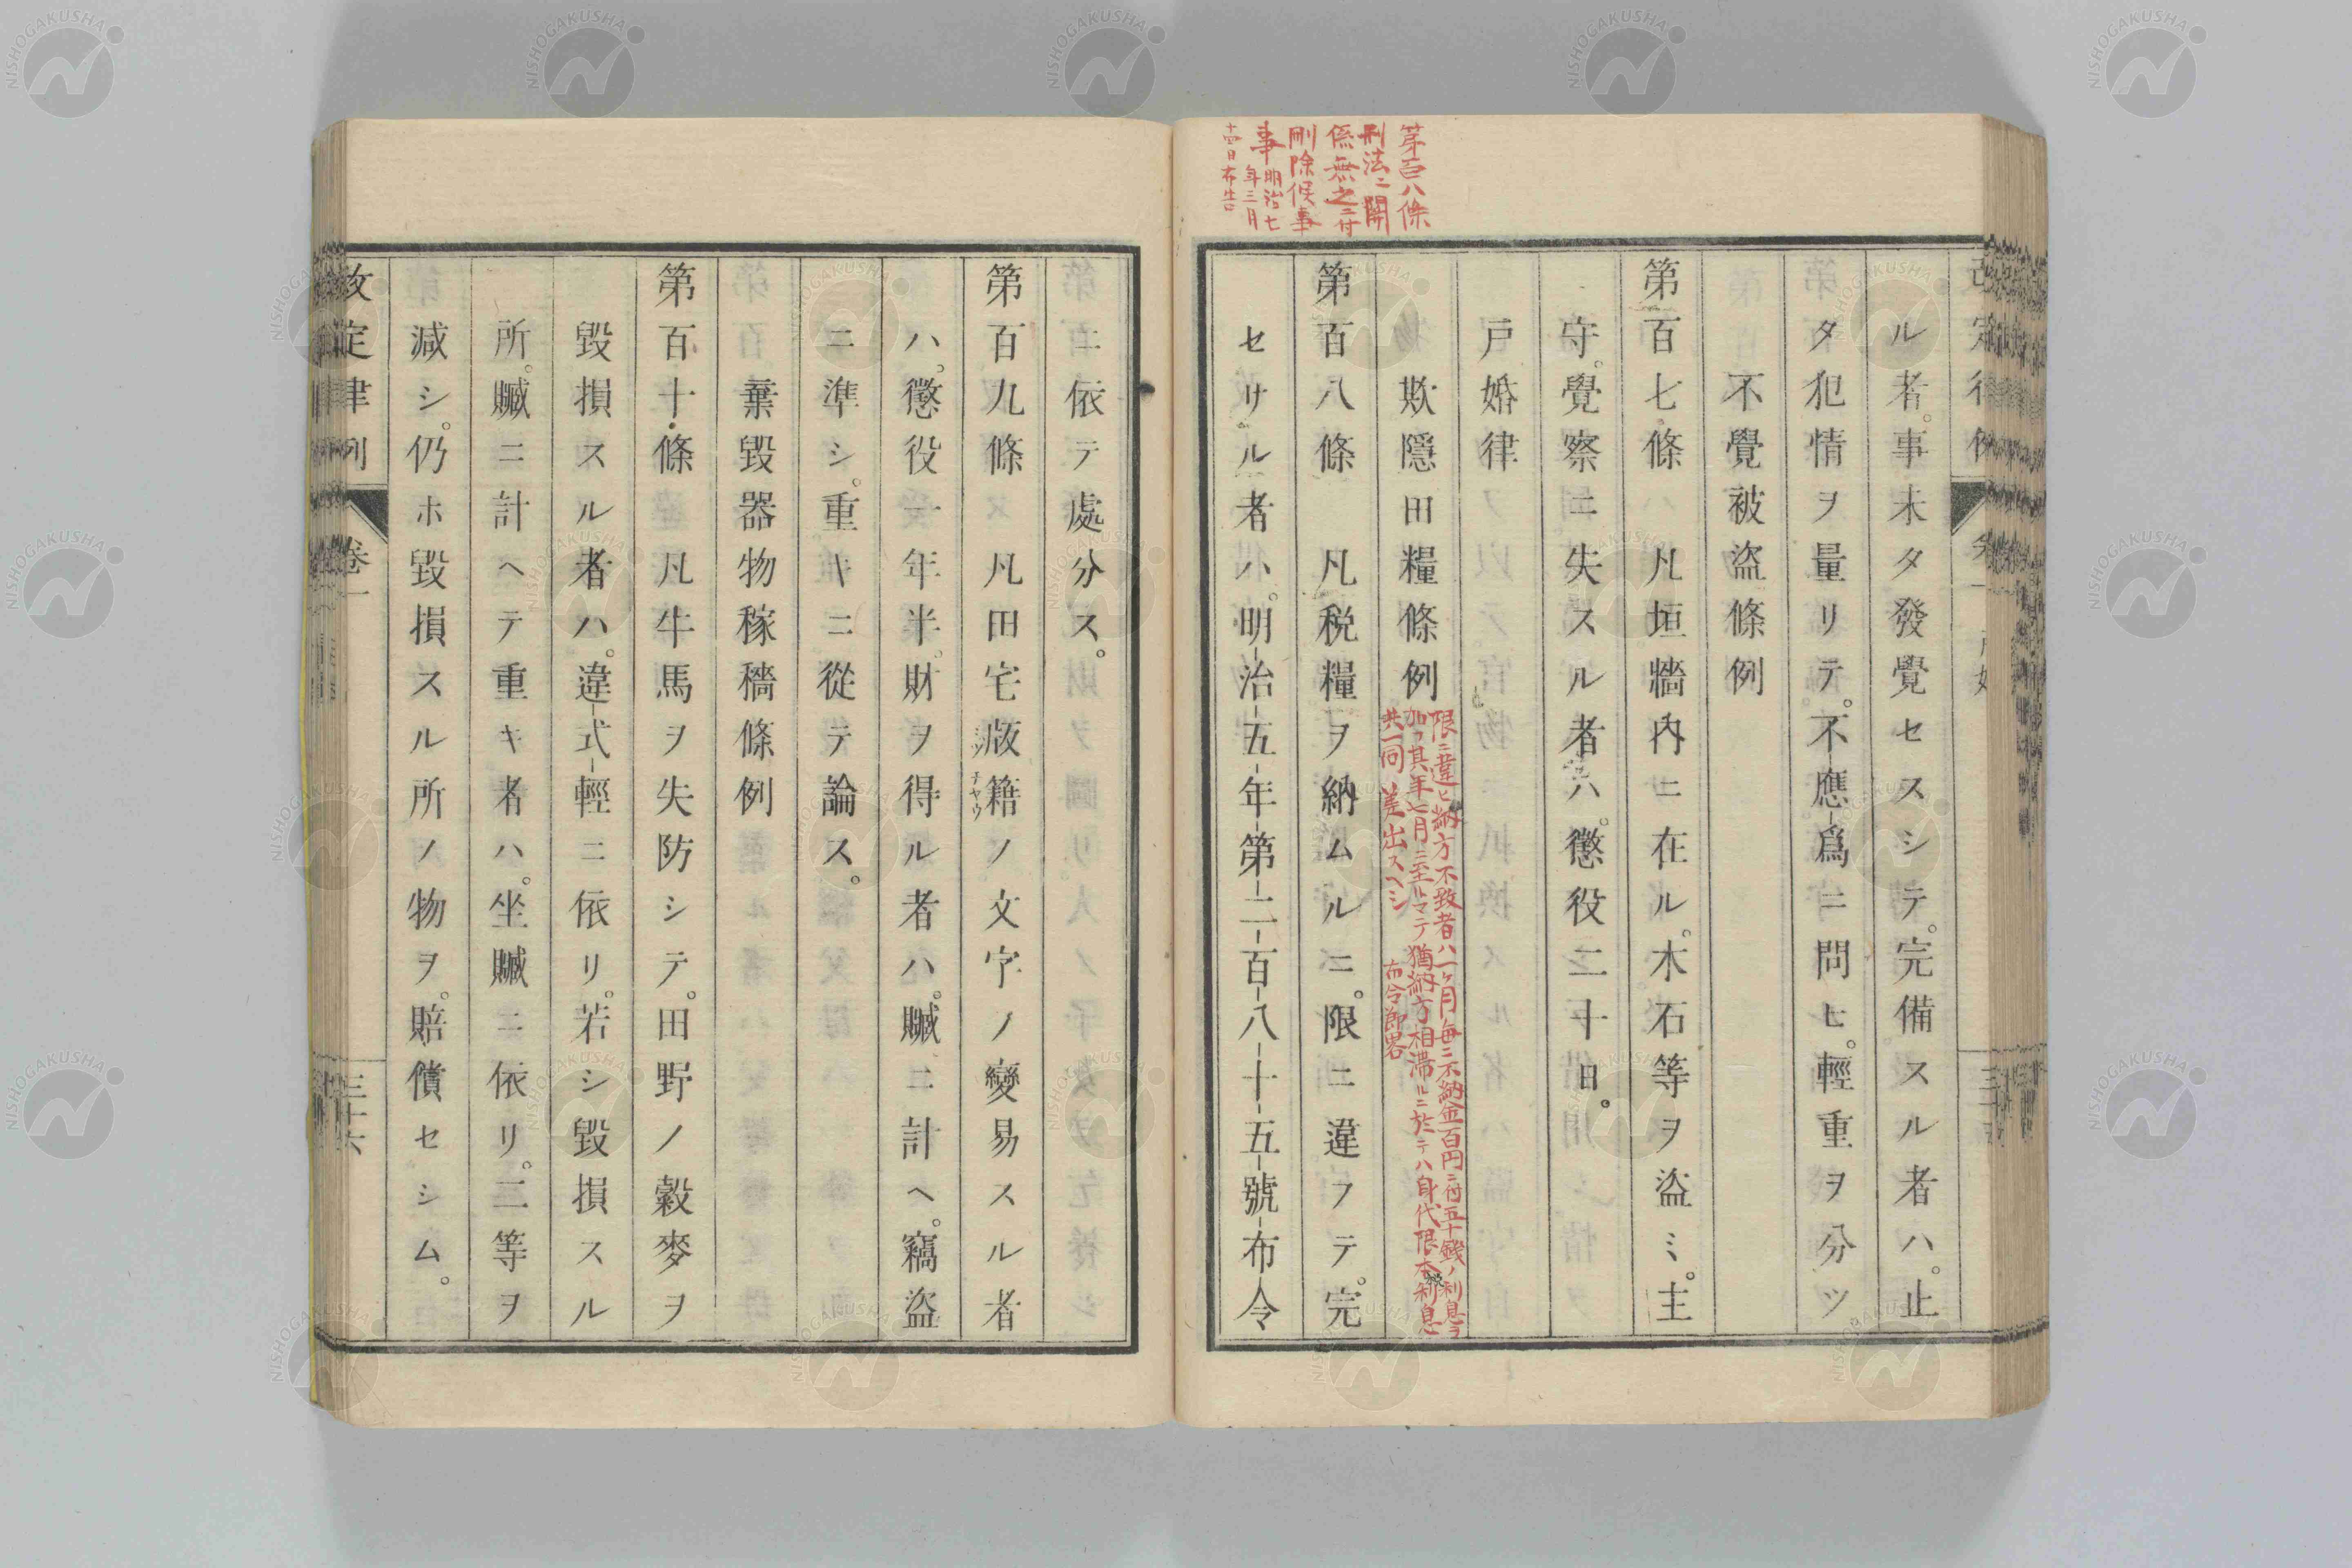 第百八條
刑法ニ關
係無之ニ付
刪除候事
事 明治七
年三月
布告
ル者。事未タ發覺セスシテ。完備スル者ハ。止
タ犯情ヲ量リテ。不應爲ニ問ヒ。輕重ヲ分ツ
不覺被盜條例
第百七條 凡垣牆內ニ在ル。木石等ヲ盜ミ。主
守。覺察ニ失スル者ハ。懲役二十日。
戸婚律
欺隱田糧條例
限ニ違ヒ納方不致者ハ一ケ月每ニ不納金百円ニ付五十錢ノ利息ヲ
加ヘ其年七月ニ至ルマテ猶納方相滯ルニ於テハ身代限本利息
共一同差出スヘシ 布令節畧
第百八條 凡税糧ヲ納ムルニ。限ニ違フテ。完
セサル者ハ。明治五年第二百八十五號布令
ニ依テ處分ス。
第百九條 凡田宅蔽籍ノ文字ノ變易スル者
ハ。懲役一年半。財ヲ得ル者ハ。贓ニ計ヘ。竊盜
ニ準シ。重キニ從テ論ス。
棄毀器物稼穡條例
第百十條 凡牛馬ヲ失防シテ。田野ノ穀麥ヲ
毀損スル者ハ。違式輕ニ依リ。若シ毀損スル
所。贓ニ計ヘテ重キ者ハ。坐贓ニ依リ。二等ヲ
減シ。仍ホ毀損スル所ノ物ヲ。賠償セシム。
改定律例 卷一 三十六
NISHOGAKUSHA